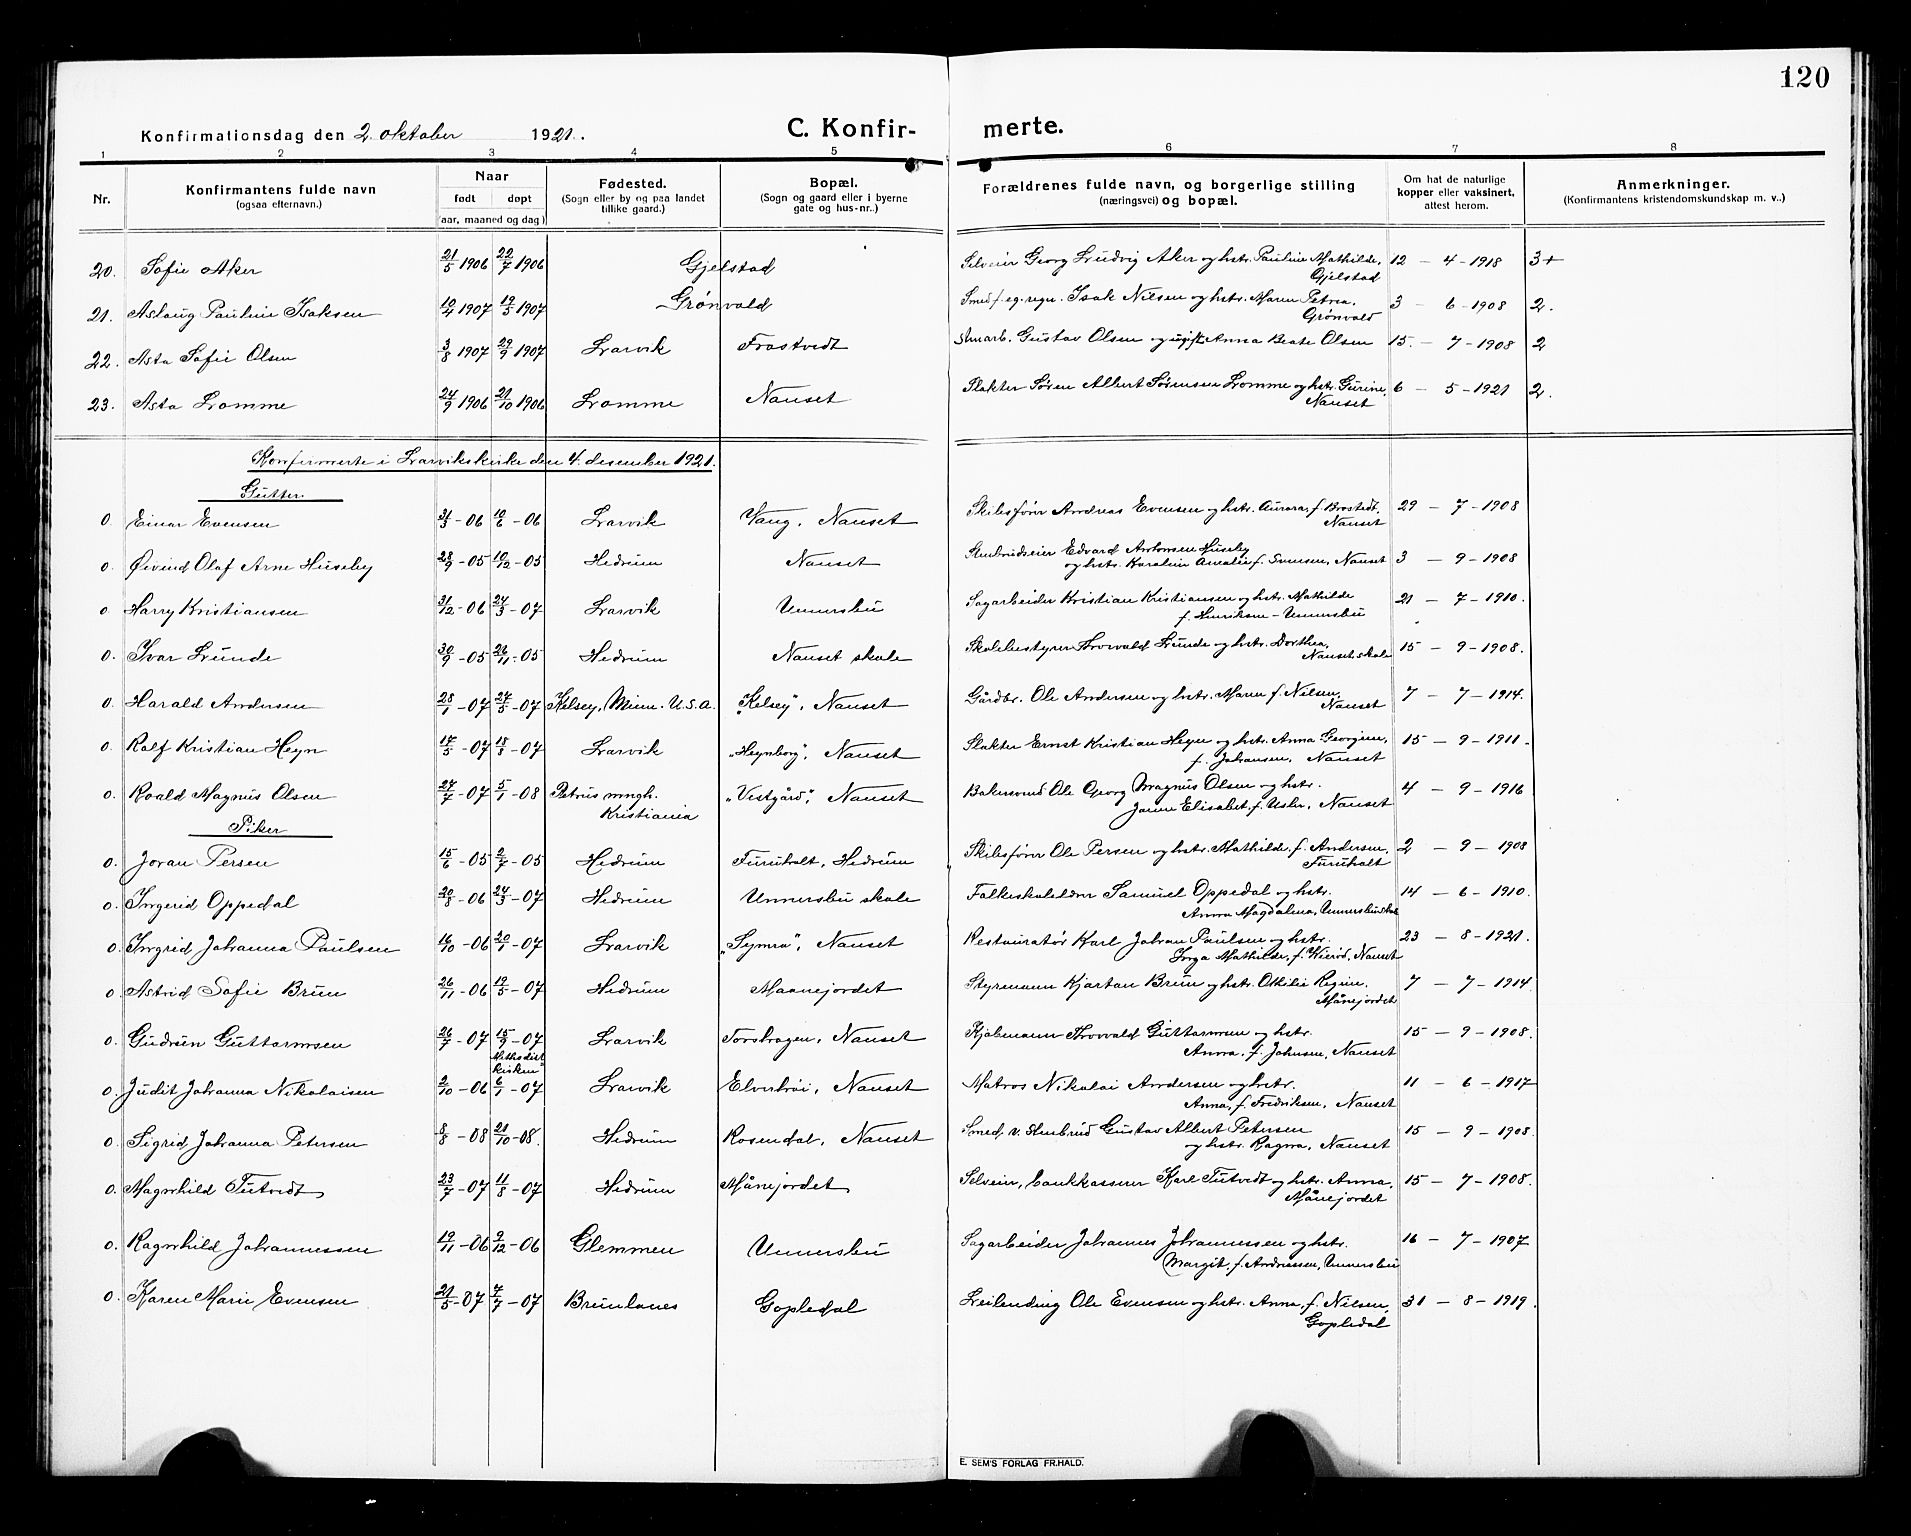 120
Konfirmationsdag den 2. oktober 1921.
C. Konfirmerte.
1 2 3 4 5 6 7 8
Nr.
Konfirmantens fulde navn
(ogsaa efternavn.)
Naar
født døpt
(aar, maaned og dag)
Fødested.
(Sogn eller by og paa landet
tillike gaard.)
Bopæl.
(Sogn og gaard eller i byerne
gate og hus-nr..)
Forældrenes fulde navn, og borgerlige stilling
(næringsvei) og bopæl.
Om hat de naturlige
kopper eller vaksinert,
attest herom.
Anmerkninger.
(Konfirmantens kristendomskundskap m. v..)
20. Sofie Aker 21/5 1906 22/7 1906 Gjelstad Selveier Georg Ludvig Aker og hstr. Pauline Mathilde, 12 - 4 - 1918 3+
Gjelstad
21. Aslaug Pauline Isaksen 10/4 1907 19/5 1907 Grønvold Smed f. eg. regn. Isak Nilsen og hstr. Maren Petrea, 3 - 6 - 1908 2.
Grønvold
22. Asta Sofie Olsen 3/8 1907 29/9 1907 Larvik Frostvedt Gustav Olsen og ugift Anna Beate Olsen 15. - 7 - 1908 2
23. Asta Lomme 24/9 1906 21/10 1906 Lomme Nanset Slakter Søren Albert Sørensen Lomme og hstr. Gurine, 6 - 5 - 1921 2.
Nanset
Konfirmerte i Larvikskirke den 4. desember 1921.
Gutter.
0. Einar Evensen 31/3 - 06 10/6 - 06 Larvik Vang, Nanset Skibsfører Andreas Evensen og hstr. Aurora, f. Brostedt, 29 - 7 - 1908
Nanset
0. Øivind Olaf Arne Huseby 28/9 - 05 10/12 - 05 Hedrum Nanset Stenbrudseier Edvard Antonsen Huseby
og hstr. Karoline Amalie f. Svensen, Nanset 3 - 9 - 1908
0 Harry Kristiansen 31/12 - 06 24/3 - 07 Larvik Unnersbu Sagarbeider Kristian Kristiansen og hstr. Mathilde 21 - 7 - 1910.
f. Henriksen - Unnersbu
0. Ivar Lunde 30/9 - 05 26/11 - 05 Hedrum Nanset skole Skolebestyrer Thorvald Lunde og hstr. Dorthea, 15 - 9 - 1908.
Nanset skole
0. Harald Andersen 28/1 - 07 27/5 - 07 Kelsey, Minn. U.S.A. "Kelsey", Nanset Gårdbr. Ole Andersen og hstr. Maren f. Nilsen, 7 - 7 - 1914.
Nanset
0. Rolf Kristian Heyn 17/5 - 07 18/8 - 07 Larvik "Heynborg", Nanset Slakter Ernst Kristian Heyn og hstr. Anna Georgine, 15 - 9 - 1911.
f. Johansen, Nanset
0. Roald Magnus Olsen 27/7 - 07 5/1 - 08 Petrus mngh. "Vestgård", Nanset Bakersvend Ole Georg Magnus Olsen og hstr. 4 - 9 - 1916
Kristiania Elisabet, Nanset
Piker
0. Joran Persen 15/6 - 05 2/7 - 05 Hedrum Furuholt, Hedrum Skibsfører Ole Persen og hstr. Mathilde, f. Andersen, 2 - 9 - 1908
Furuholt
0. Ingerid Oppedal 20/8 - 06 24/3 - 07 Hedrum Unnersbu skole Folkeskolelærer Samuel Oppedal og hstr. 14 - 6 - 1910.
Anna Magdalena, Unnersbu skole
0. Ingrid Johanna Paulsen 16/10 - 06 20/1 - 07 Larvik "Symra", Nanset Restauratør Karl Johan Paulsen og hstr. 23 - 8 - 1921.
Inga Mathilde, f. Kierød, Nanset
0 Astrid Sofie Brun 26/11 - 06 19/5 - 07 Hedrum Maanejordet Styrmann Kjartan Brun og hstr. Othilie Regine, 7 - 7 - 1914.
Månejordet
0. Gudrun Guttormsen 26/7 - 07 15/9 - 07 Larvik Torshagen, Nanset Kjøbmann Thorvald Guttormsen og hstr. 15 - 9 - 1908.
Methodist kirken Anna, f. Johnsen, Nanset
0. Judit Johanna Nikolaisen 2/10 - 06 6/1 - 07 Larvik Elverhøi, Nanset Matros Nikolai Andersen og hstr. 11 - 6 - 1917
Anna, f. Fredriksen, Nanset
0. Sigrid Johanna Petersen 8/8 - 08 21/10 - 08. Hedrum Rosendal, Nanset Smed v. Stenbrud Gustav Albert Petersen 15 - 9 - 1908.
og hstr. Ragna, Nanset
0. Magnhild Tutvedt 23/7 - 07 11/8 - 07 Hedrum Månejordet Selveier, bankkasserer Karl Tutvedt og hstr. Anna, 15 - 7 - 1908.
Månejordet
0. Ragnhild Johannessen 19/11 - 06 9/12 - 06 Glemmen Unnersbu Sagarbeider Johannes Johannessen og hstr. 16 - 7 - 1907
Margit, f. Andreassen, Unnersbu
0. Karen Marie Evensen 21/5 - 07 7/7 - 07 Brunlanes Gopledal Leilending Ole Evensen og hstr. Anna, f. Nilsen, 31 - 8 - 1919.
Gopledal
E. SEM'S FORLAG FR.HALD.